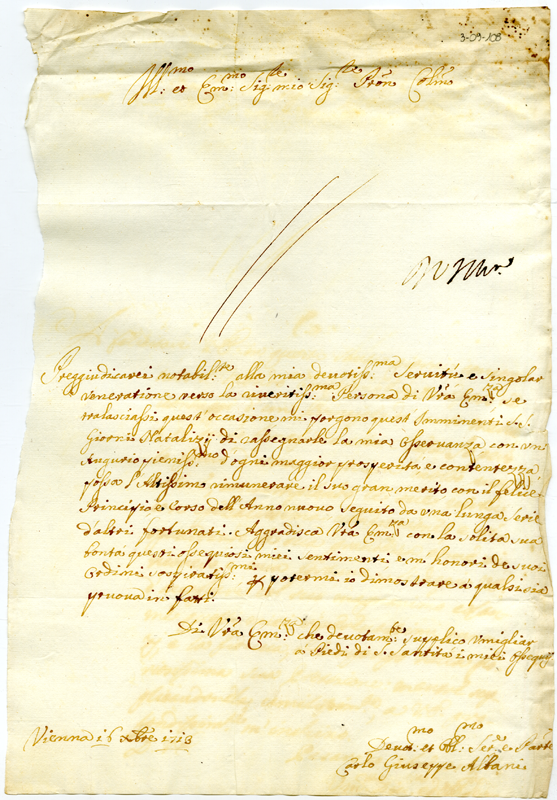 3-09-108
Ill:mo et Em:mo Sig:re mio Sig:re Pron Colmo
Preggiudicarei notabil:te alla mia devotiss:ma Servitù e singolar
veneratione verso la riveritiss:ma Persona di Vrã Em:za se
tralasciassi quest'occasione mi porgono quest'Imminenti S.
Giorni Natalizij di rassegnarle la mia osservanza con un
Augurio pieniss:mo d'ogni maggior prosperità e contentezza
possa l'Altissimo rimunerare il suo gran merito con il felice
Principio e Corso dell'Anno nuovo seguito da una lunga serie
d'altri fortunati. Aggradisca Vrã Em:za con la solita sua
bontà questi ossequiosi miei sentimenti e m'honori de suoi
ordini sospiratiss:mi potermi io dimostrare a qualsisia
pruova in fatti.
Di Vrã Em:za che devotam:te supplico umigliar
a Piedi di S. Santità i miei ossequij
Vienna 16 Xbre 1713
Devot:mo et Obl:mo Ser:e e Parte
Carlo Giuseppe Albani